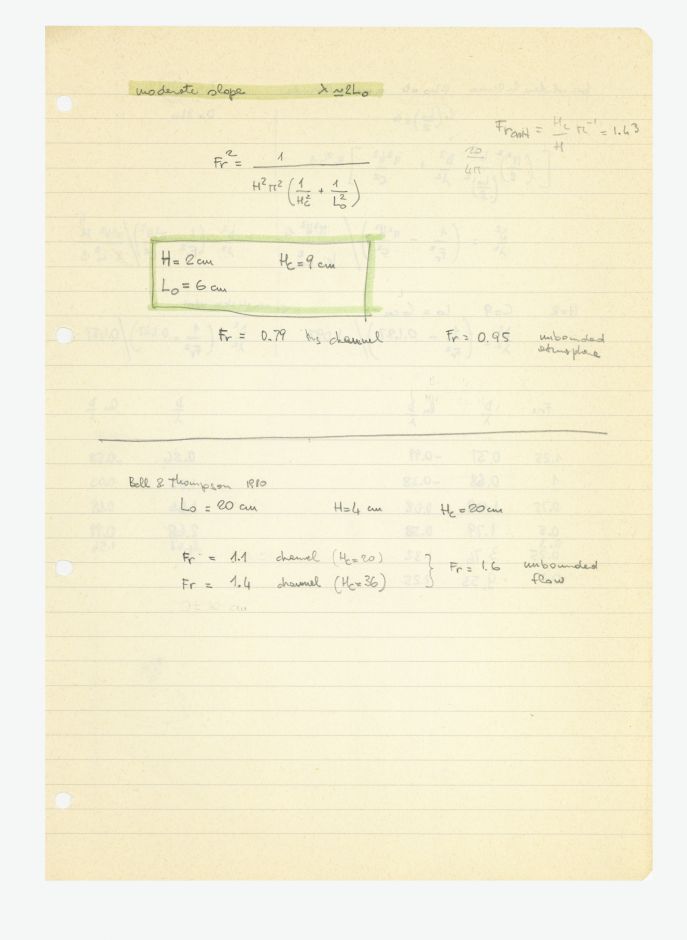 moderate slope λ ≃ 2L₀
Fr = H_c/H π⁻¹ = 1.43
20/4π
Fr² = 1 / (H² π² (1/H_c² + 1/L₀²))
H = 2 cm H_c = 9 cm
L₀ = 6 cm
Fr = 0.79 channel Fr = 0.95 unbounded
atmosphere
Bell & Thompson 1980
L₀ = 20 cm H = 4 cm H_c = 20 cm
Fr = 1.1 channel (H_c = 20)
Fr = 1.4 channel (H_c = 36) } Fr = 1.6 unbounded
flow